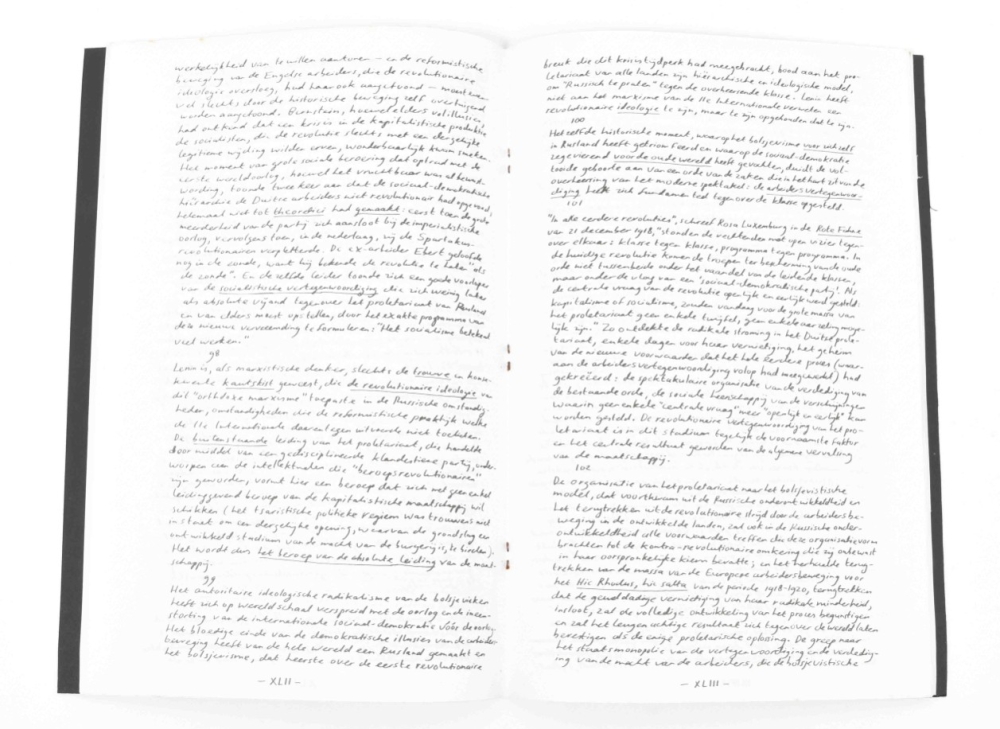 werkelijkheid van te willen aantonen – en de reformistische
beweging van de Engelse arbeiders, die de revolutionaire
ideologie oversloeg, had haar ook aangetoond – moest zwaar
wel slechts door de historische beweging zelf overtuigend
worden aangetoond. Bernstein, hoewel elders vol illusies,
had ontkend dat een krisis in de kapitalistische produktie
de socialisten, die de revolutie slechts met een dergelijke
legitieme wijding wilden erven, wonderbaarlijk kwam smeken.
Het moment van grote sociale beroering dat optrad met de
eerste wereldoorlog, hoewel het vruchtbaar was al bewust-
wording, toonde twee keer aan dat de sociaal-demokratische
hiërarchie de Duitse arbeiders niet revolutionair had opgevoed,
helemaal niet tot theoretici had gemaakt: eerst toen de grote
meerderheid van de partij zich aansloot bij de imperialistische
oorlog, vervolgens toen, in de nederlaag, zij de Spartakus-
revolutionairen verpletterde. De ex-arbeider Ebert geloofde
nog in de zonde, want hij bekende de revolutie te haten "als
de zonde". En dezelfde leider toonde zich een goede voorloper
van de socialistische vertegenwoordiging die zich weinig later
als absolute vijand tegenover het proletariaat van Rusland
en van elders moest opstellen, door het exakte programma van
deze nieuwe vervreemding te formuleren: "Het socialisme betekent
veel werken."
98
Lenin is, als marxistische denker, slechts de trouwe en konse-
kwente kautskist geweest, die de revolutionaire ideologie van
dit "orthodoxe marxisme" toepaste in de Russische omstandig-
heden, omstandigheden die de reformistische praktijk welke
de IIe Internationale daarentegen uitvoerde niet toelieten.
De buitenstaande leiding van het proletariaat, die handelde
door middel van een gedisciplineerde klandestiene partij, onder-
worpen aan de intellektuelen die "beroepsrevolutionairen"
zijn geworden, vormt hier een beroep dat zich met geen enkel
leidinggevend beroep van de kapitalistische maatschappij wil
schikken (het tsaristische politieke regiem was trouwens niet
in staat om een dergelijke opening, waarvan de grondslag een
ontwikkeld stadium van de macht van de burgerij is, te bieden).
Het wordt dus het beroep van de absolute leiding van de maat-
schappij.
99
Het autoritaire ideologische radikalisme van de bolsjevieken
heeft zich op wereldschaal verspreid met de oorlog en de ineen-
storting van de internationale sociaal-demokratie vóór de oorlog.
Het bloedige einde van de demokratische illusies van de arbeiders-
beweging heeft van de hele wereld een Rusland gemaakt en
het bolsjevisme, dat heerste over de eerste revolutionaire
– XLII –
breuk die dit krisistijdperk had meegebracht, bood aan het pro-
letariaat van alle landen zijn hiërarchische en ideologische model,
om "Russisch te praten" tegen de overheersende klasse. Lenin heeft
niet aan het marxisme van de IIe Internationale verweten een
revolutionaire ideologie te zijn, maar te zijn opgehouden dat te zijn.
100
Hetzelfde historische moment, waarop het bolsjevisme voor zichzelf
in Rusland heeft getriomfeerd en waarop de sociaal-demokratie
zegevierend voor de oude wereld heeft gevochten, duidt de vol-
tooide geboorte aan van een orde van de zaken die in het hart zit van de
overheersing van het moderne spektakel: de arbeidersvertegenwoor-
diging heeft zich fundamenteel tegenover de klasse opgesteld.
101
"In alle eerdere revoluties", schreef Rosa Luxemburg in de Rote Fahne
van 21 december 1918, "stonden de vechtenden met open vizier tegen-
over elkaar: klasse tegen klasse, programma tegen programma. In
de huidige revolutie komen de troepen ter bescherming van de oude
orde niet tussenbeide onder het vaandel van de leidende klassen,
maar onder de vlag van een 'sociaal-demokratische partij'. Als
de centrale vraag van de revolutie openlijk en eerlijk werd gesteld:
kapitalisme of socialisme, zouden vandaag voor de grote massa van
het proletariaat geen enkele twijfel, geen enkele aarzeling moge-
lijk zijn." Zo ontdekte de radikale stroming in het Duitse prole-
tariaat, enkele dagen voor haar vernietiging, het geheim
van de nieuwe voorwaarden dat het hele eerdere proces (waar-
aan de arbeidersvertegenwoordiging volop had meegewerkt) had
gekreëerd: de spektakulaire organisatie van de verdediging van
de bestaande orde, de sociale heerschappij van de verschijningen
waarin geen enkele "centrale vraag" meer "openlijk en eerlijk" kan
worden gesteld. De revolutionaire vertegenwoordiging van het pro-
letariaat is in dit stadium tegelijk de voornaamste faktor
en het centrale resultaat geworden van de algemene vervalsing
van de maatschappij.
102
De organisatie van het proletariaat naar het bolsjevistische
model, dat voortkwam uit de Russische onderontwikkeldheid en
het terugtrekken uit de revolutionaire strijd door de arbeidersbe-
weging in de ontwikkelde landen, zal ook in de Russische onder-
ontwikkeldheid alle voorwaarden treffen die deze organisatievorm
brachten tot de kontra-revolutionaire omkering die zij onbewust
in haar oorspronkelijke kiem bevatte; en het herhaalde terug-
trekken van de massa van de Europese arbeidersbeweging voor
het Hic Rhodus, hic salta van de periode 1918-1920, terugtrekken
dat de gewelddadige vernietiging van haar radikale minderheid,
insloot, zal de volledige ontwikkeling van het proces begunstigen
en zal het leugenachtige resultaat zich tegenover de wereld laten
bevestigen als de enige proletarische oplossing. De greep naar
het staatsmonopolie van de vertegenwoordiging en de verdedig-
ing van de macht van de arbeiders, die de bolsjevistische
– XLIII –